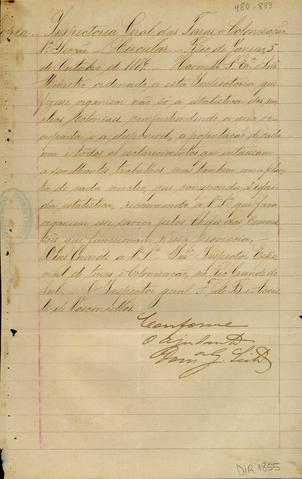 480-889
Copia Inspectoria Geral das Terras e Colonisação
1ª Secção Circular Rio de Janeiro, 5
de Outubro de 1889 Havendo S. Exª o Snr
Ministro ordenado, a esta Inspectoria que
fizesse organisar não só a estatistica dos nu
cleos coloniaes, comprehendendo a area oc
cupada e a disponivel, a população de cada
um e todos os esclarecimentos que interessem
a semelhantes trabalhos, mas tambem uma plan
ta de cada nucleo, que corresponda á referi
da estatistica, recommendo a V. Sª que faça
organisar esse serviço pelos chefes das commis
sões que funccionam nessa provincia.
Deus Guarde a V. Sª Snr. Inspector Espe
cial de Terras e Colonisação, no Rio Grande do
Sul. O Inspector geral F. de B. e Accio
li de Vasconcellos.
Conforme
O Ajudante
DIR 1855